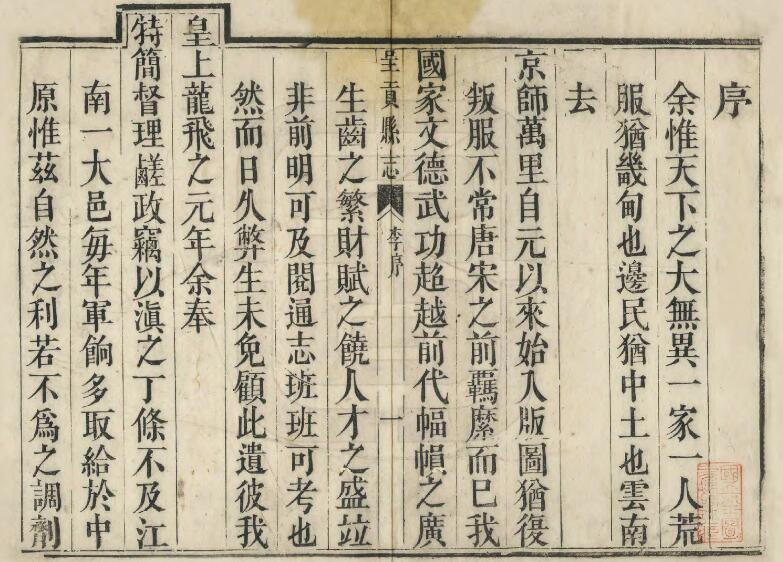 序
余惟天下之大無異一家一人荒
服猶畿甸也邊民猶中土也雲南
去
京師萬里自元以來始入版圖猶復
叛服不常唐宋之前羈縻而已我
國家文德武功超越前代幅幀之廣
呈貢縣志 李序 一
生齒之繁財賦之饒人才之盛竝
非前明可及閱通志班班可考也
然而日久弊生未免顧此遺彼我
皇上龍飛之元年余奉
特簡督理鹺政竊以滇之丁條不及江
南一大邑每年軍餉多取給於中
原惟茲自然之利若不為之調劑